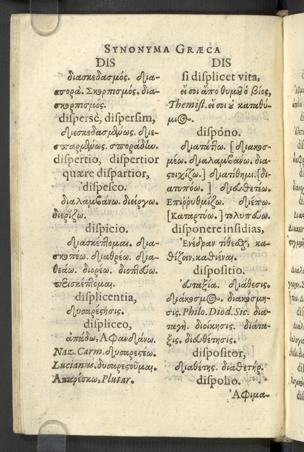 SYNONYMA GRÆCA
DIS
διασκεδασμός. δια-
σπορά. Σκορπισμός. δια-
σκορπισμός.
disperse, dispersim,
διεσκεδασμένως. διε-
σπαρμένως. σποράδων.
dispertio, dispertior
quære dispartior,
dispesco.
διαλαμβάνω. διείργω.
διορίζω.
dispicio.
διασκέπτομαι. δια-
σκοπέω. διαθρέω. δια-
θεάω. διορέω.
περισκέπτομαι.
displicentia,
δυσαρέστησις.
displiceo,
ἀπᾴδω. Ἀφανδάνω.
Naz. Carm. δυσαρεστέω.
Lucianus. δυσαρεστοῦμαι.
Ἀπαρέσκω, Plutar.
DIS
si displicet vita,
εἴ σοι ἀποθυμός ὁ βίος,
Themist. εἴ σοι
dispóno.
διατάττω. [διακοσ-
μέω. διαλαμβάνω. δια-
στοιχίζω.] διατίθημι. [δι-
ατυπόω.] διευθετίω.
Ἐπιῤῥυθμίζω. διέπω.
[Καταρτύω.] τολυπεύω.
disponere insidias,
Ἐνέδραν τίθεσθαι, κα-
θίζειν, καθιέναι.
dispositio.
εὐταξία. διάθεσις.
διάκοσμος. διακόσμη-
σις. Philo. Diod. Sic. δια-
ταγή. διοίκησις. διάτα-
ξις. διευθέτησις.
dispositor,
διαθέτης. διαθετήρ.
dispolio.
Ἀφιμα-